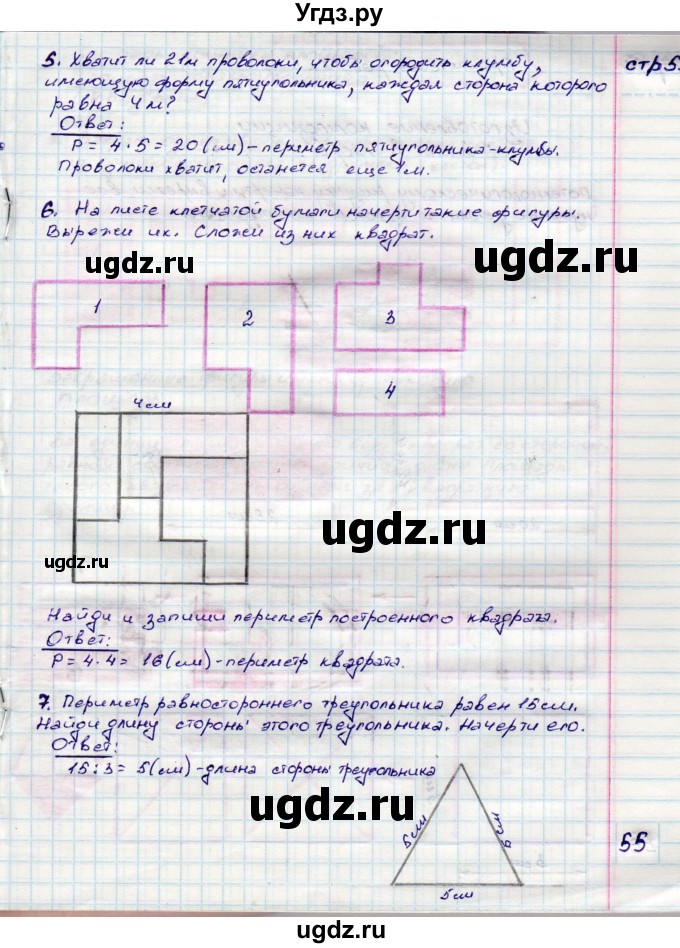 Угдз.ру
5. Хватит ли 21м проволоки, чтобы огородить клумбу,
стр5.
имеющую форму пятиугольника, каждая сторона которого
равна 4м?
Ответ:
P = 4 · 5 = 20 (м) - периметр пятиугольника-клумбы.
Проволоки хватит, останется еще 1м.
6. На листе клетчатой бумаги начерти такие фигуры.
Вырежи их. Сложи из них квадрат.
ugdz.ru
ugdz.ru
1
2
3
4
4см
ugdz.ru
ugdz.ru
Найди и запиши периметр построенного квадрата.
Ответ:
P = 4 · 4 = 16 (см) - периметр квадрата.
7. Периметр равностороннего треугольника равен 15см.
Найди длину стороны этого треугольника. Начерти его.
Ответ:
15 : 3 = 5 (см) - длина стороны треугольника
ugdz.ru
ugdz.ru
5см
5см
5см
55
ugdz.ru
ugdz.ru